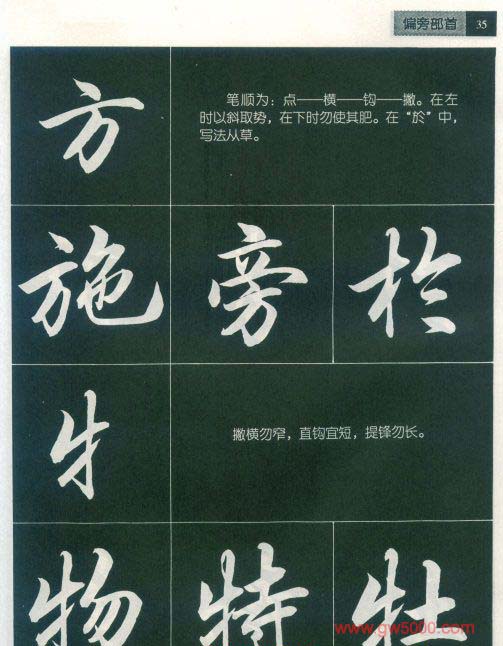 偏旁部首 35
方
笔顺为：点——横——钩——撇。在左
时以斜取势，在下时勿使其肥。在“於”中，
写法从草。
施 旁 於
牜
撇横勿窄，直钩宜短，提锋勿长。
物 特 牡
www.gw5000.com